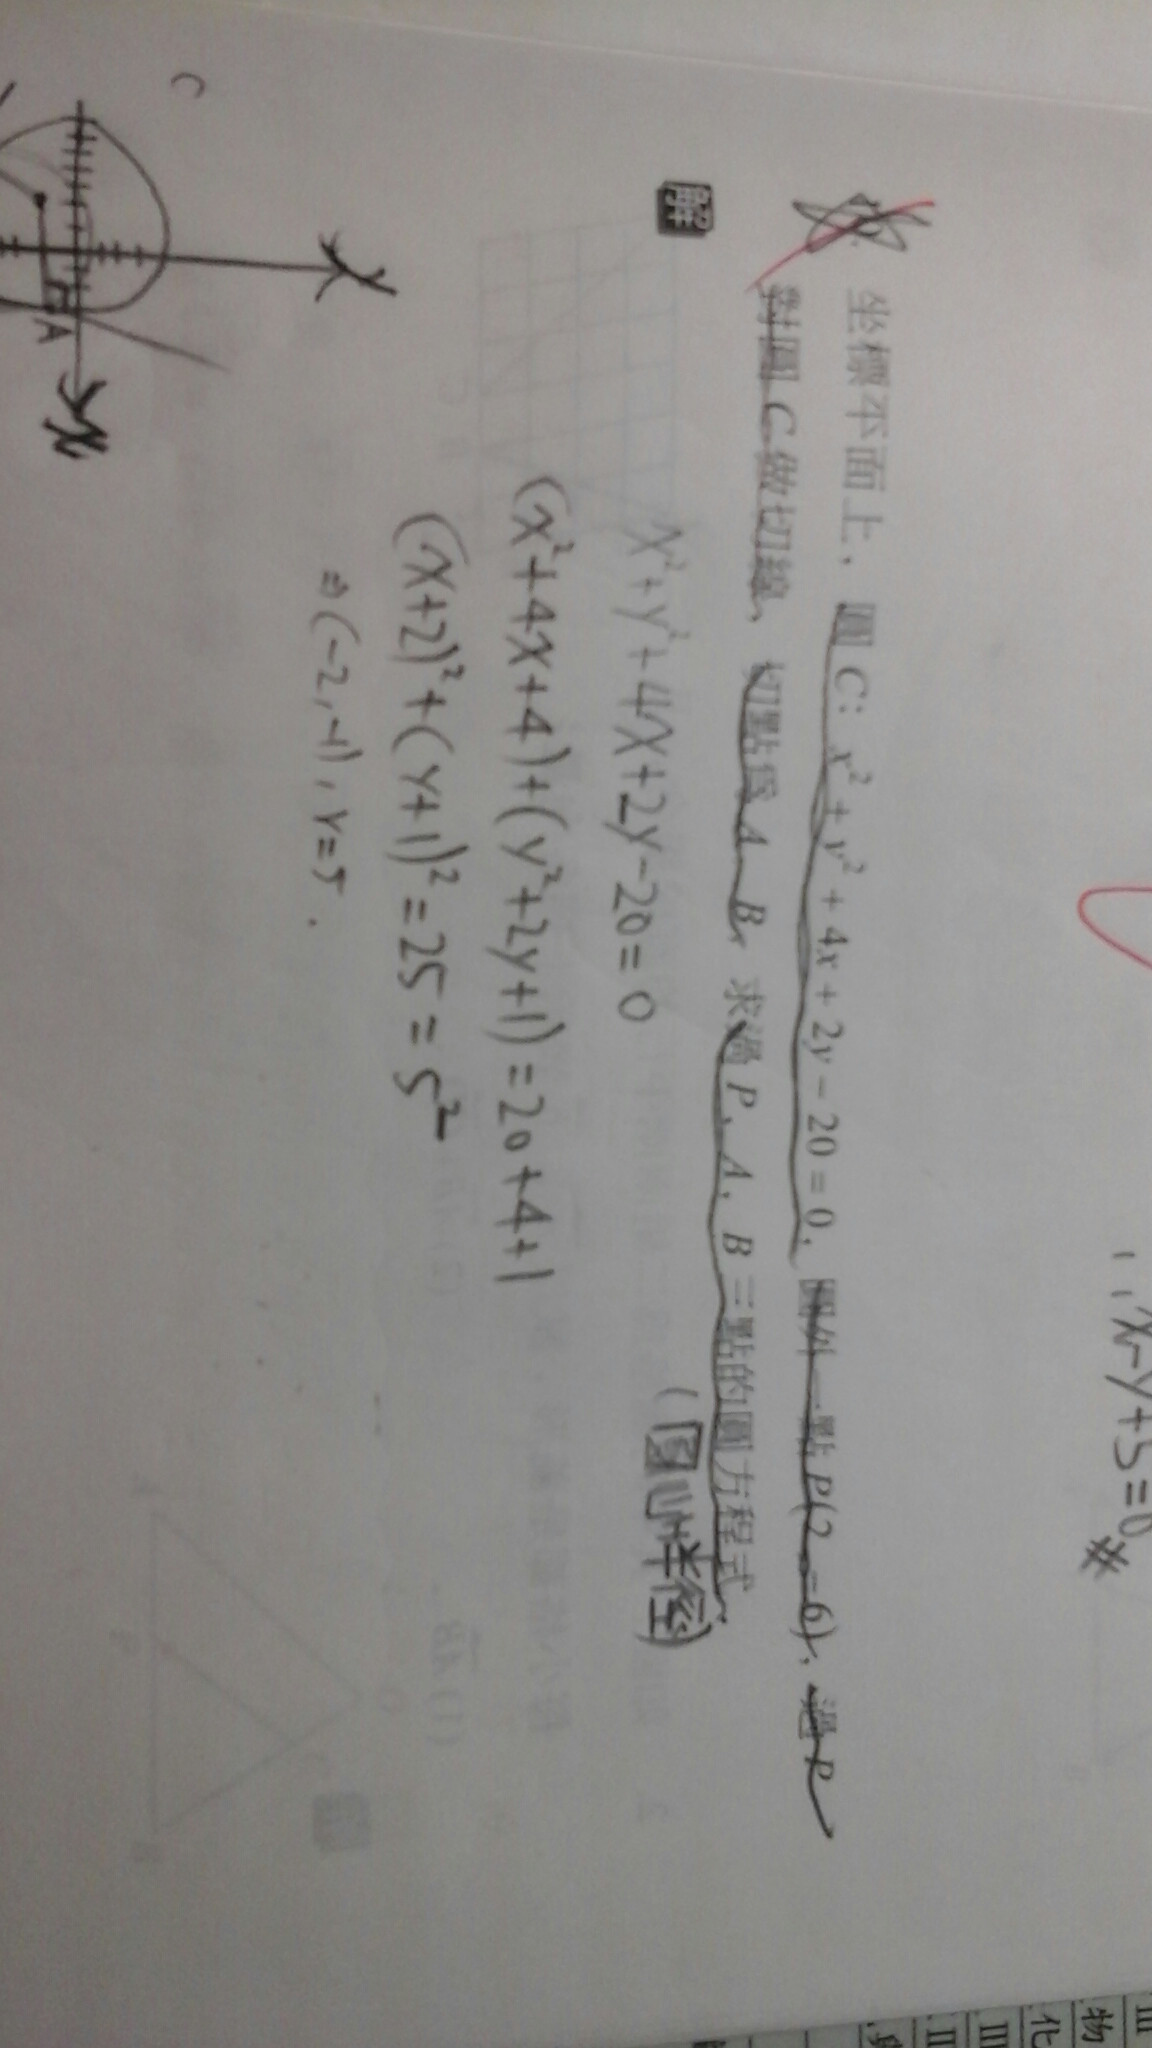 ∴x-y+5=0 #
坐標平面上，圓 C：x²+y²+4x+2y-20=0，圓外一點 P(2,-6)，過 P
對圓 C 做切線，切點為 A、B，求過 P、A、B 三點的圓方程式.
解
(圓心半徑)
x²+y²+4x+2y-20=0
(x²+4x+4)+(y²+2y+1)=20+4+1
(x+2)²+(y+1)²=25=5²
⇒(-2,-1), r=5.
y
x
A
C
III
物
化
III
II